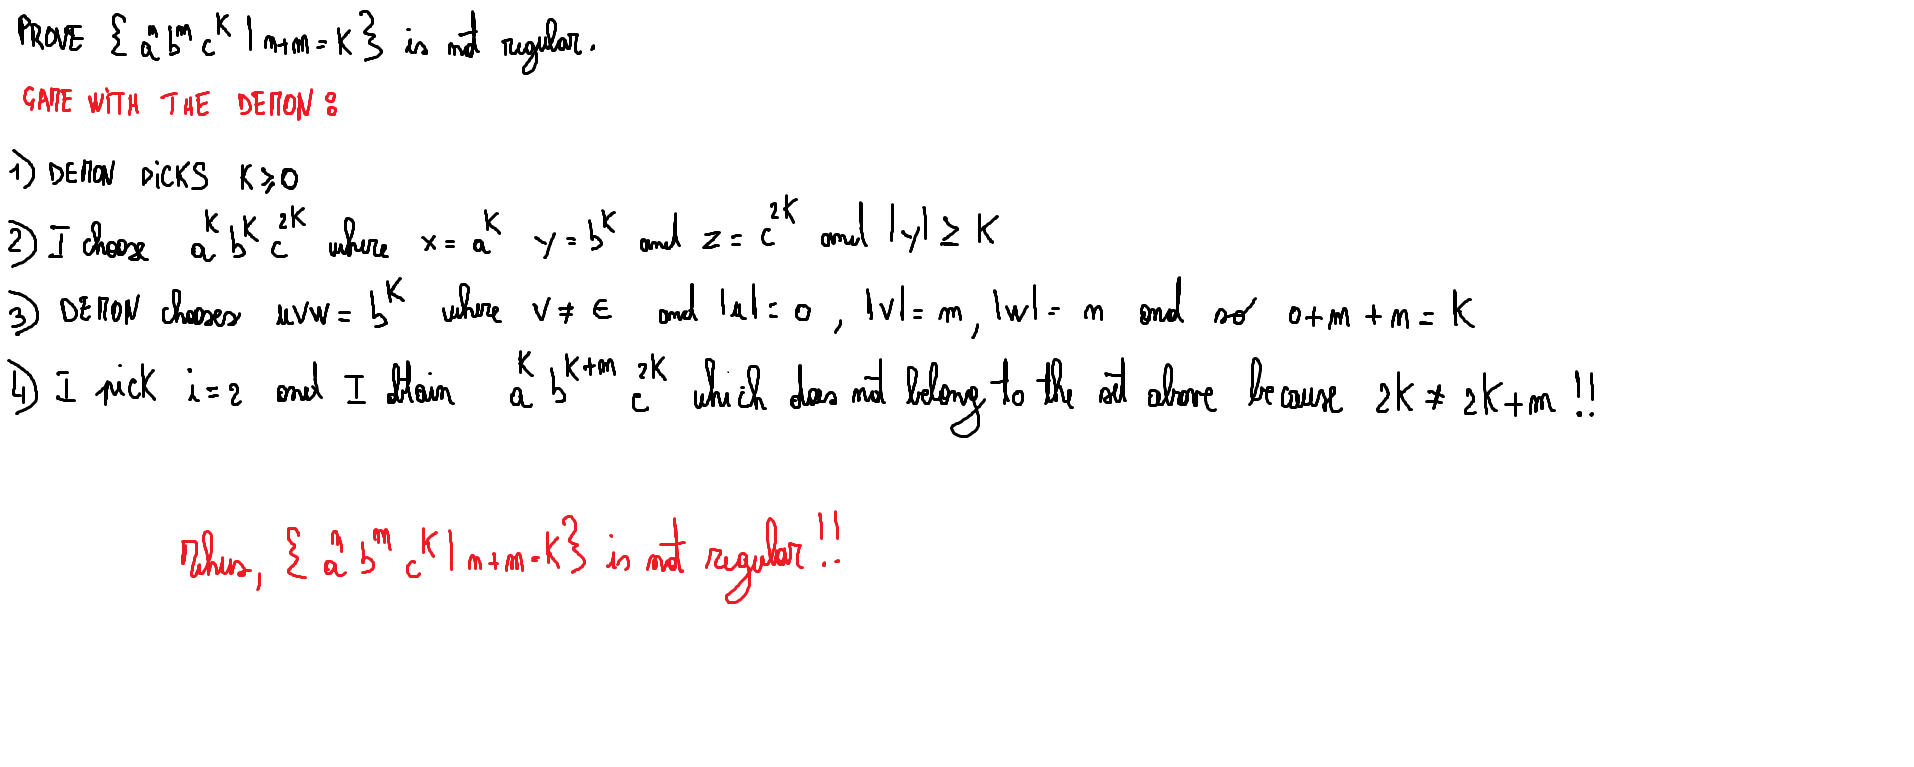 PROVE { aⁿ bᵐ cᴷ | n+m = K } is not regular.
GAME WITH THE DEMON :
1) DEMON PICKS K ⩾ 0
2) I choose aᴷ bᴷ c²ᴷ where x = aᴷ y = bᴷ and z = c²ᴷ and |y| ≥ K
3) DEMON chooses uvw = bᴷ where v ≠ ϵ and |u| = o , |v| = m, |w| = n and so o + m + n = K
4) I pick i = 2 and I obtain aᴷ bᴷ⁺ᵐ c²ᴷ which does not belong to the set above because 2K ≠ 2K+m !!
Thus, { aⁿ bᵐ cᴷ | n+m = K } is not regular !!